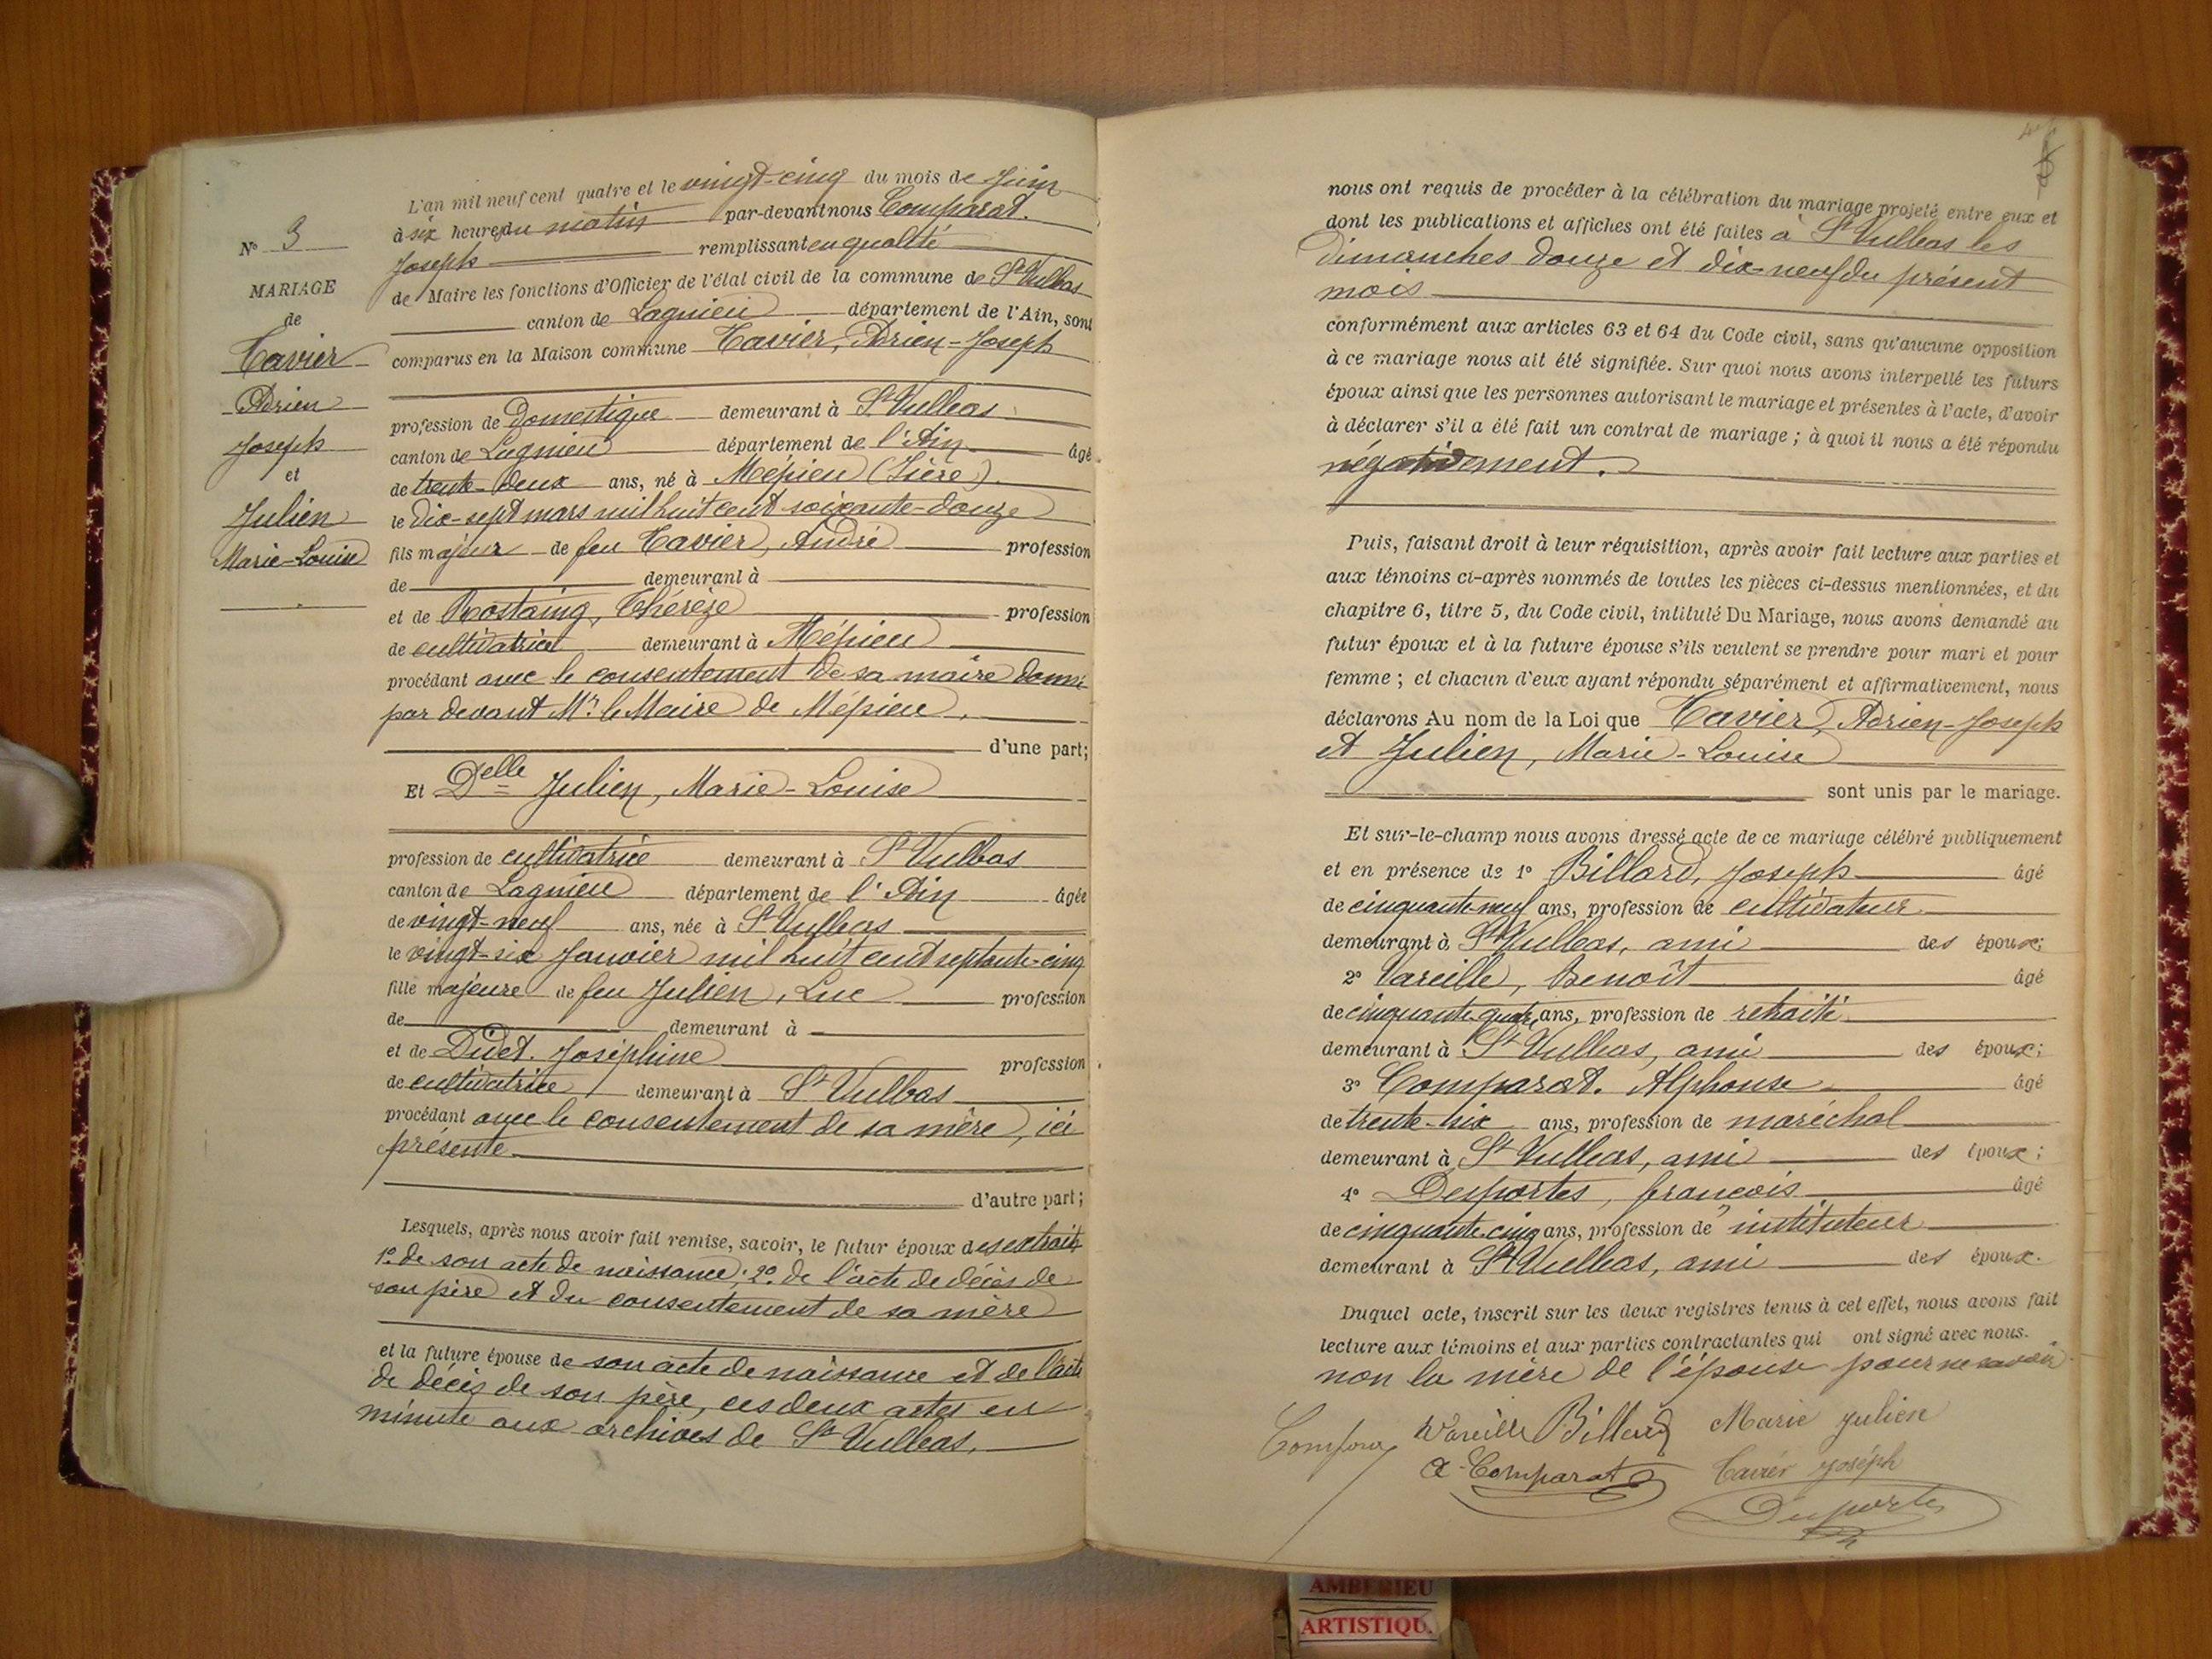 N° 3
MARIAGE
de
Tavier
Adrien
Joseph
et
Julien
Marie-Louise
L'an mil neuf cent quatre et le vingt-cinq du mois de Juin
à six heures du matin par-devant nous Comparat.
Joseph remplissant en qualité
de Maire les fonctions d'Officier de l'état civil de la commune de St Vulbas
canton de Lagnieu département de l'Ain, sont
comparus en la Maison commune Tavier, Adrien-Joseph
profession de Domestique demeurant à St Vulbas
canton de Lagnieu département de l'Ain âgé
de trente-deux ans, né à Mépieu (Isère)
le Dix-sept mars mil huit cent soixante-douze
fils majeur de feu Tavier, André profession
de demeurant à
et de Rostaing, Thérèze profession
de cultivatrice demeurant à Mépieu
procédant avec le consentement de sa maire donné
par devant Mr. le Maire de Mépieu,
d'une part;
Et Delle Julien, Marie-Louise
profession de cultivatrice demeurant à St Vulbas
canton de Lagnieu département de l'Ain âgée
de vingt-neuf ans, née à St Vulbas
le vingt-six Janvier mil huit cent septante-cinq
fille majeure de feu Julien, Luc profession
de demeurant à
et de Didet. Joséphine profession
de cultivatrice demeurant à St Vulbas
procédant avec le consentement de sa mère, ici
présente
d'autre part;
Lesquels, après nous avoir fait remise, savoir, le futur époux des extraits
1° de son acte de naissance; 2° de l'acte de décès de
son père et du consentement de sa mère
et la future épouse de son acte de naissance et de l'acte
de décès de son père, ces deux actes en
minute aux archives de St Vulbas,
nous ont requis de procéder à la célébration du mariage projeté entre eux et
dont les publications et affiches ont été faites à St Vulbas les
Dimanches douze et dix-neuf du présent
mois
conformément aux articles 63 et 64 du Code civil, sans qu'aucune opposition
à ce mariage nous ait été signifiée. Sur quoi nous avons interpellé les futurs
époux ainsi que les personnes autorisant le mariage et présentes à l'acte, d'avoir
à déclarer s'il a été fait un contrat de mariage; à quoi il nous a été répondu
négativement.
Puis, faisant droit à leur réquisition, après avoir fait lecture aux parties et
aux témoins ci-après nommés de toutes les pièces ci-dessus mentionnées, et du
chapitre 6, titre 5, du Code civil, intitulé Du Mariage, nous avons demandé au
futur époux et à la future épouse s'ils veulent se prendre pour mari et pour
femme; et chacun d'eux ayant répondu séparément et affirmativement, nous
déclarons Au nom de la Loi que Tavier, Adrien-Joseph
et Julien, Marie-Louise
sont unis par le mariage.
Et sur-le-champ nous avons dressé acte de ce mariage célébré publiquement
et en présence de 1° Billard, Joseph âgé
de cinquante-neuf ans, profession de cultivateur
demeurant à St Vulbas, ami des époux;
2° Vareille, Benoît âgé
de cinquante-quatre ans, profession de retraité
demeurant à St Vulbas, ami des époux;
3° Comparat. Alphonse âgé
de trente-six ans, profession de maréchal
demeurant à St Vulbas, ami des époux;
4° Desportes, françois âgé
de cinquante-cinq ans, profession de instituteur
demeurant à St Vulbas, ami des époux.
Duquel acte, inscrit sur les deux registres tenus à cet effet, nous avons fait
lecture aux témoins et aux parties contractantes qui ont signé avec nous.
non la mère de l'épouse pour ne savoir.
Vareille Billard Marie Julien
A. Comparat Tavier Joséph
Desportes
AMBERIEU
ARTISTIQU